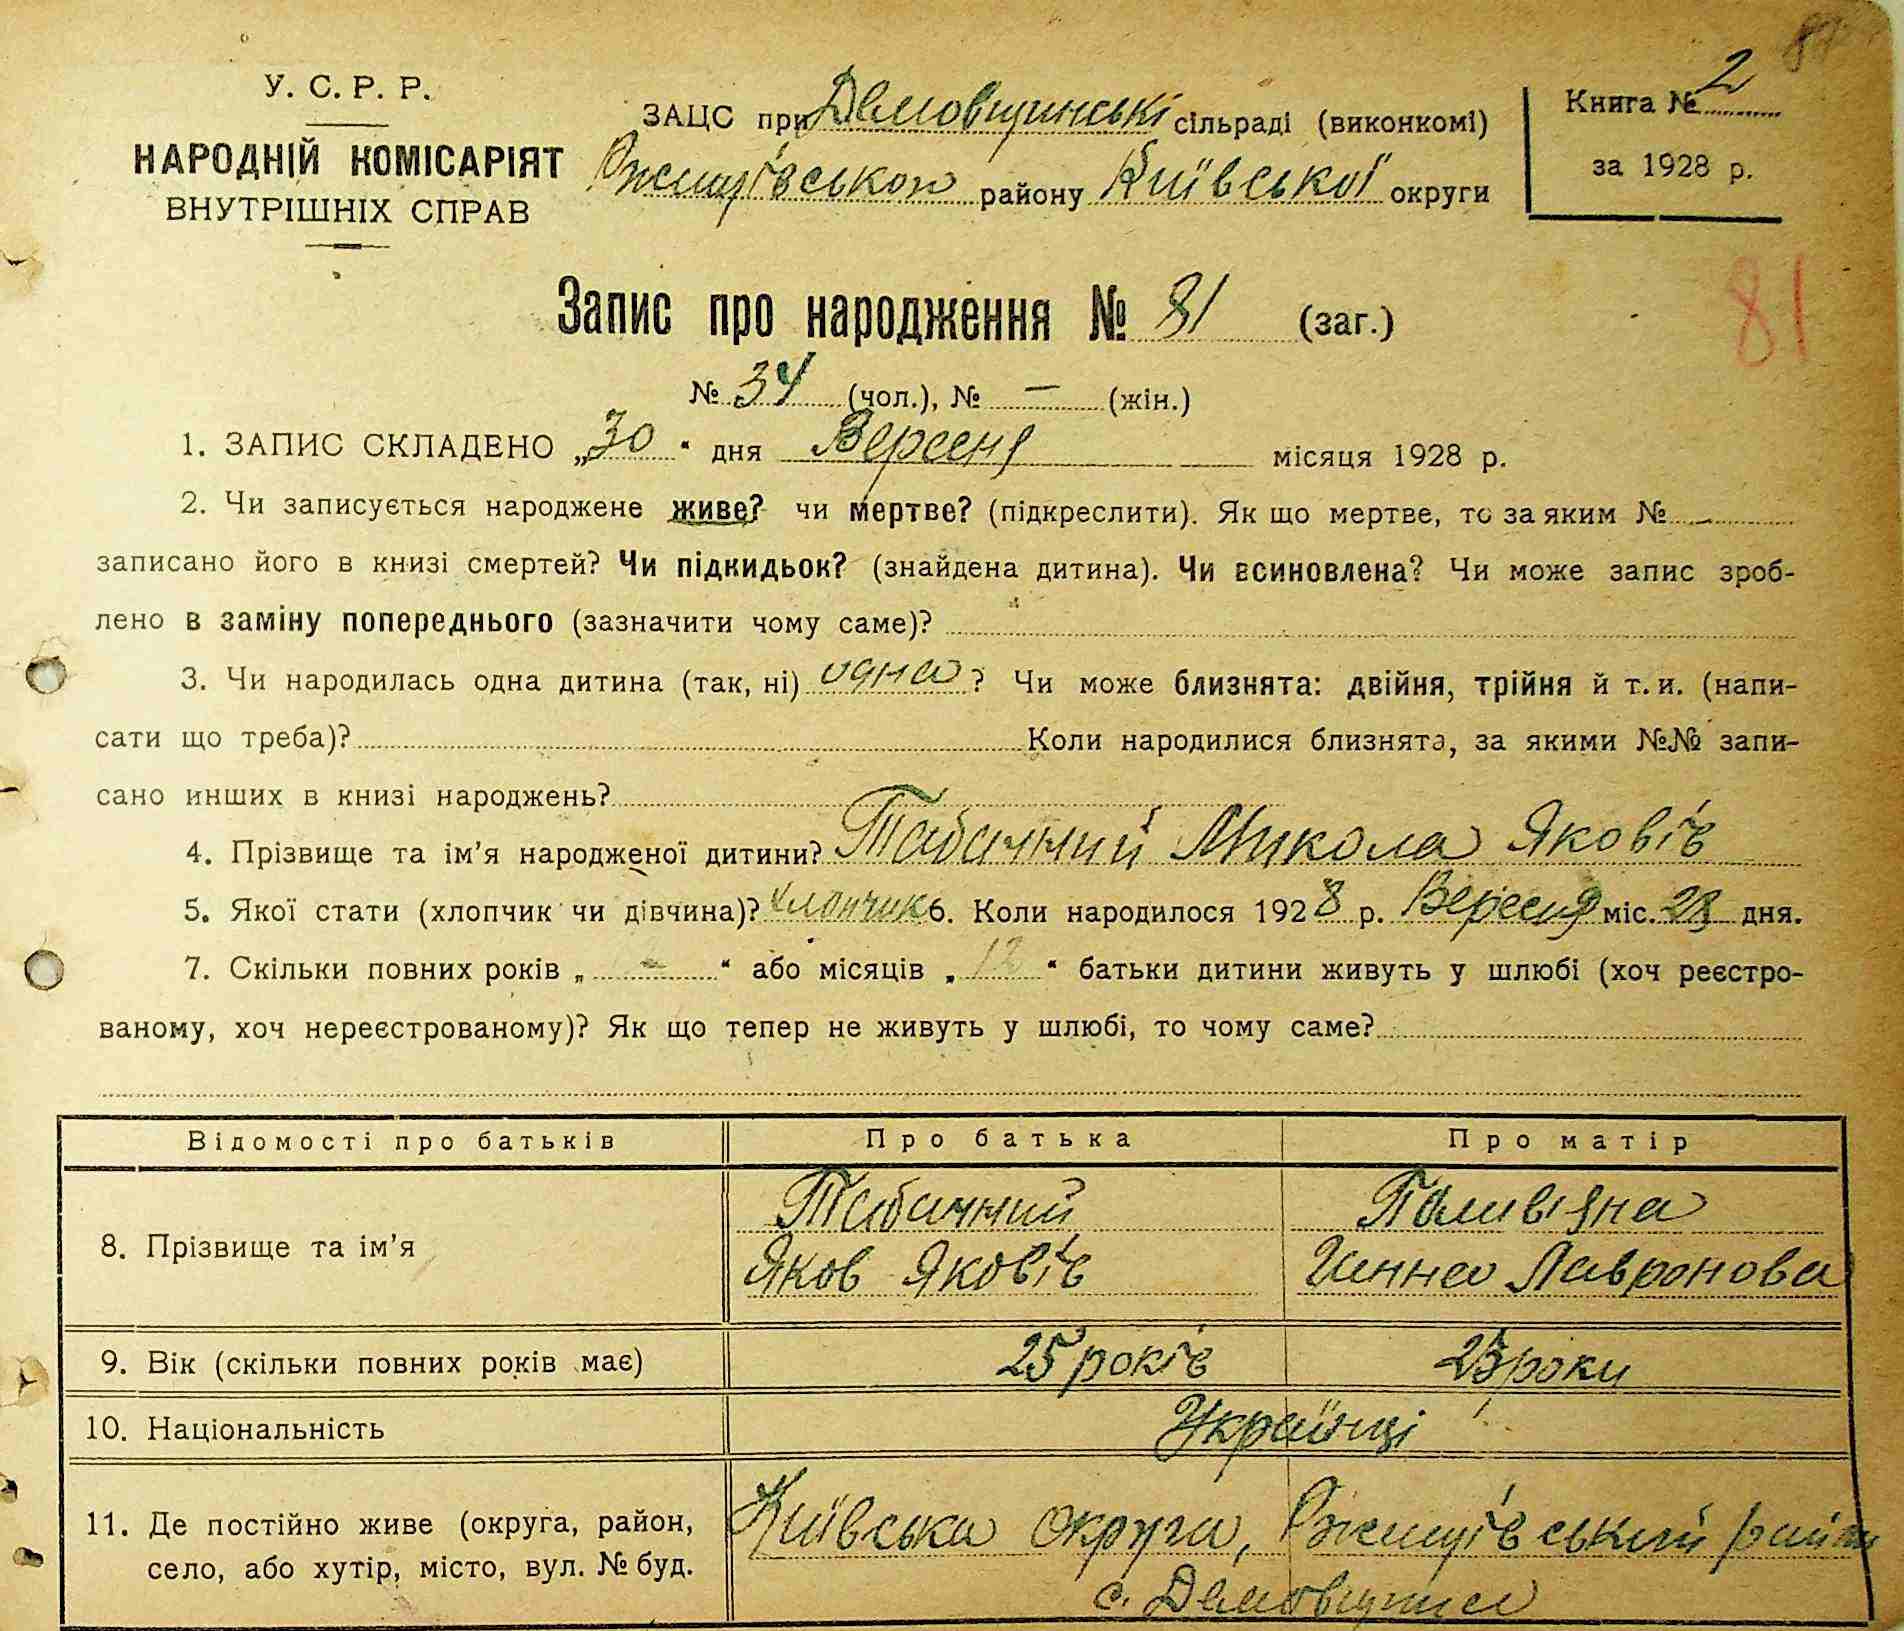 81
У. С. Р. Р.
НАРОДНІЙ КОМІСАРІЯТ
ВНУТРІШНІХ СПРАВ
ЗАЦС при Демовщинські сільраді (виконкомі)
Ржищівського району Київської округи
Книга № 2
за 1928 р.
81
Запис про народження № 81 (заг.)
№ 34 (чол.), № — (жін.)
1. ЗАПИС СКЛАДЕНО „30“ дня Вересня місяця 1928 р.
2. Чи записується народжене живе? чи мертве? (підкреслити). Як що мертве, то за яким № –
записано його в книзі смертей? Чи підкидьок? (знайдена дитина). Чи всиновлена? Чи може запис зроб-
лено в заміну попереднього (зазначити чому саме)?
3. Чи народилась одна дитина (так, ні) одна? Чи може близнята: двійня, трійня й т. и. (напи-
сати що треба)? Коли народилися близнята, за якими №№ запи-
сано инших в книзі народжень?
4. Прізвище та ім’я народженої дитини? Табачний Микола Яковів
5. Якої стати (хлопчик чи дівчина)? хлопчик 6. Коли народилося 1928 р. Вересня міс. 28 дня.
7. Скільки повних років „ – “ або місяців „ 12 “ батьки дитини живуть у шлюбі (хоч реєстро-
ваному, хоч нереєстрованому)? Як що тепер не живуть у шлюбі, то чому саме?
Відомості про батьків Про батька Про матір
8. Прізвище та ім’я
Табачний
Яков Яковів
Паливяна
Ганна Лавронова
9. Вік (скільки повних років має) 25 років 23 роки
10. Національність Українці
11. Де постійно живе (округа, район,
село, або хутір, місто, вул. № буд.
Київська округа, Ржищівський район
с. Демовщина